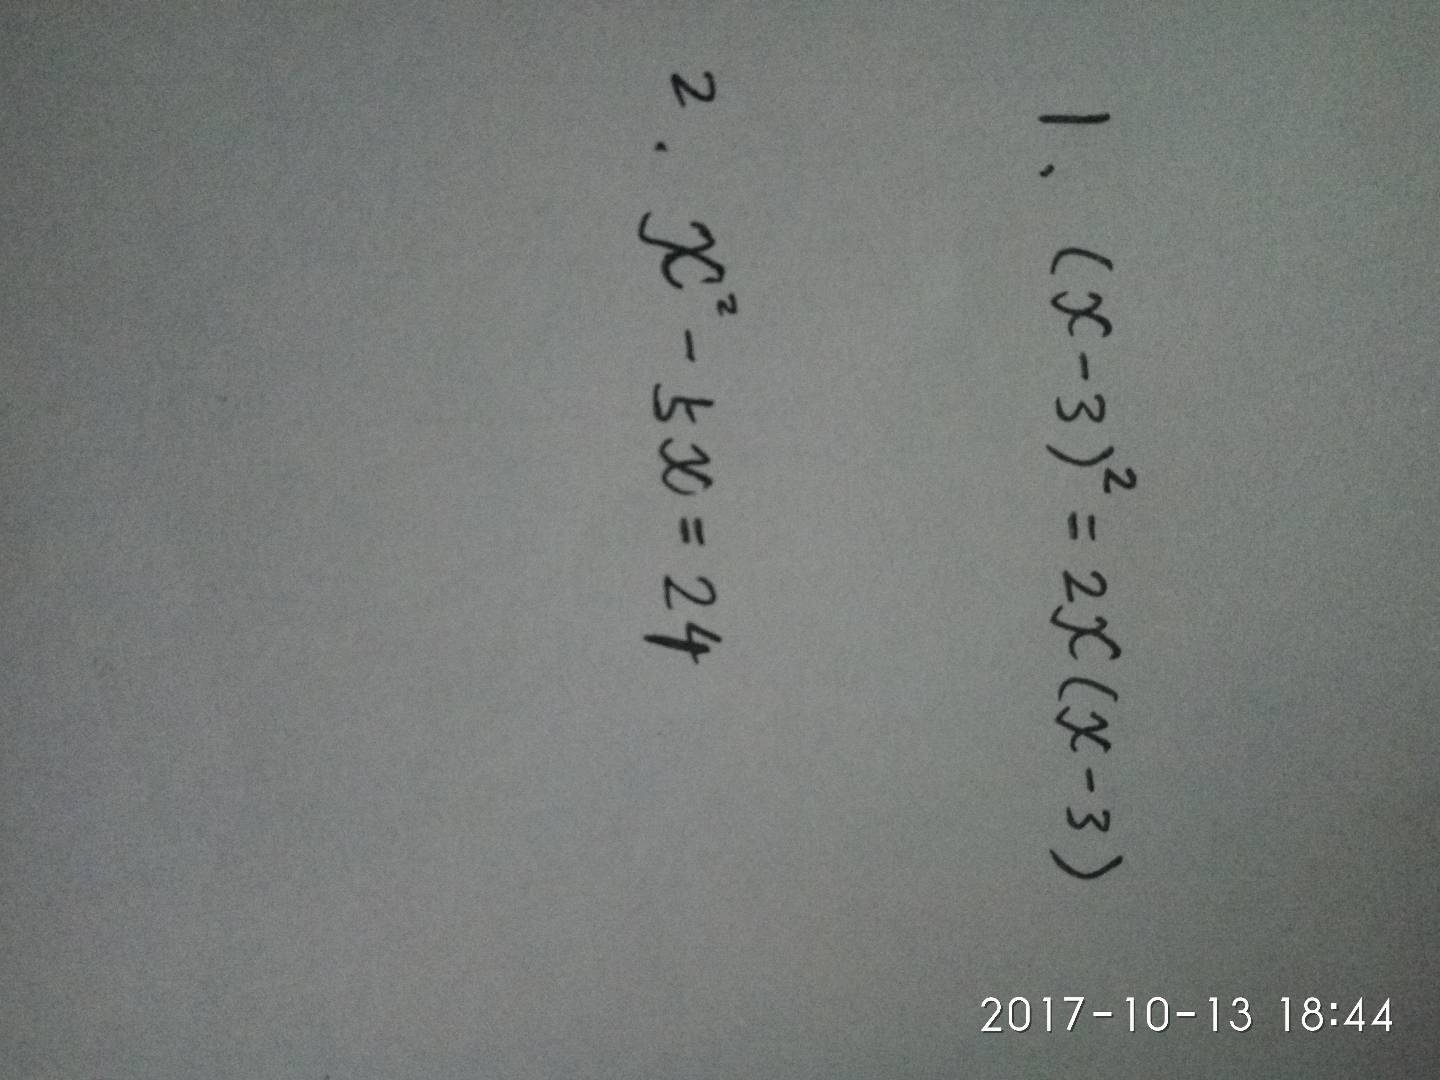 1. (x-3)² = 2x(x-3)
2. x² - 5x = 24
2017-10-13 18:44